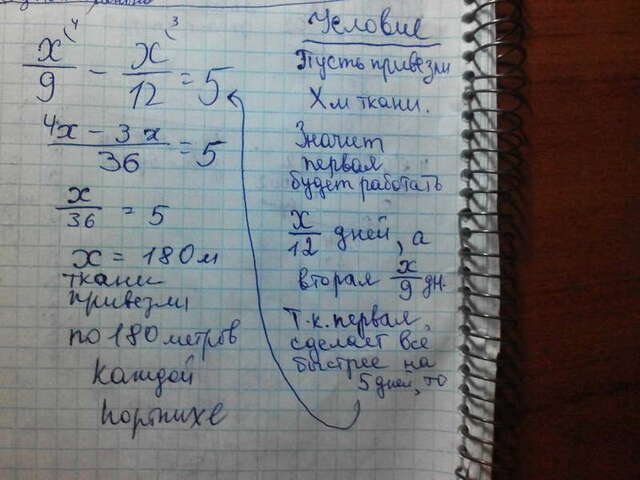 x/9 (4 - x/12 (3 = 5
4x - 3x / 36 = 5
x/36 = 5
x = 180м
ткани
привезли
по 180 метров
каждой
портнихе
Условие
Пусть привезли
X м ткани.
Значит
первая
будет работать
x/12 дней, а
вторая x/9 дн.
Т.к. первая,
сделает все
быстрее на
5 дней, то